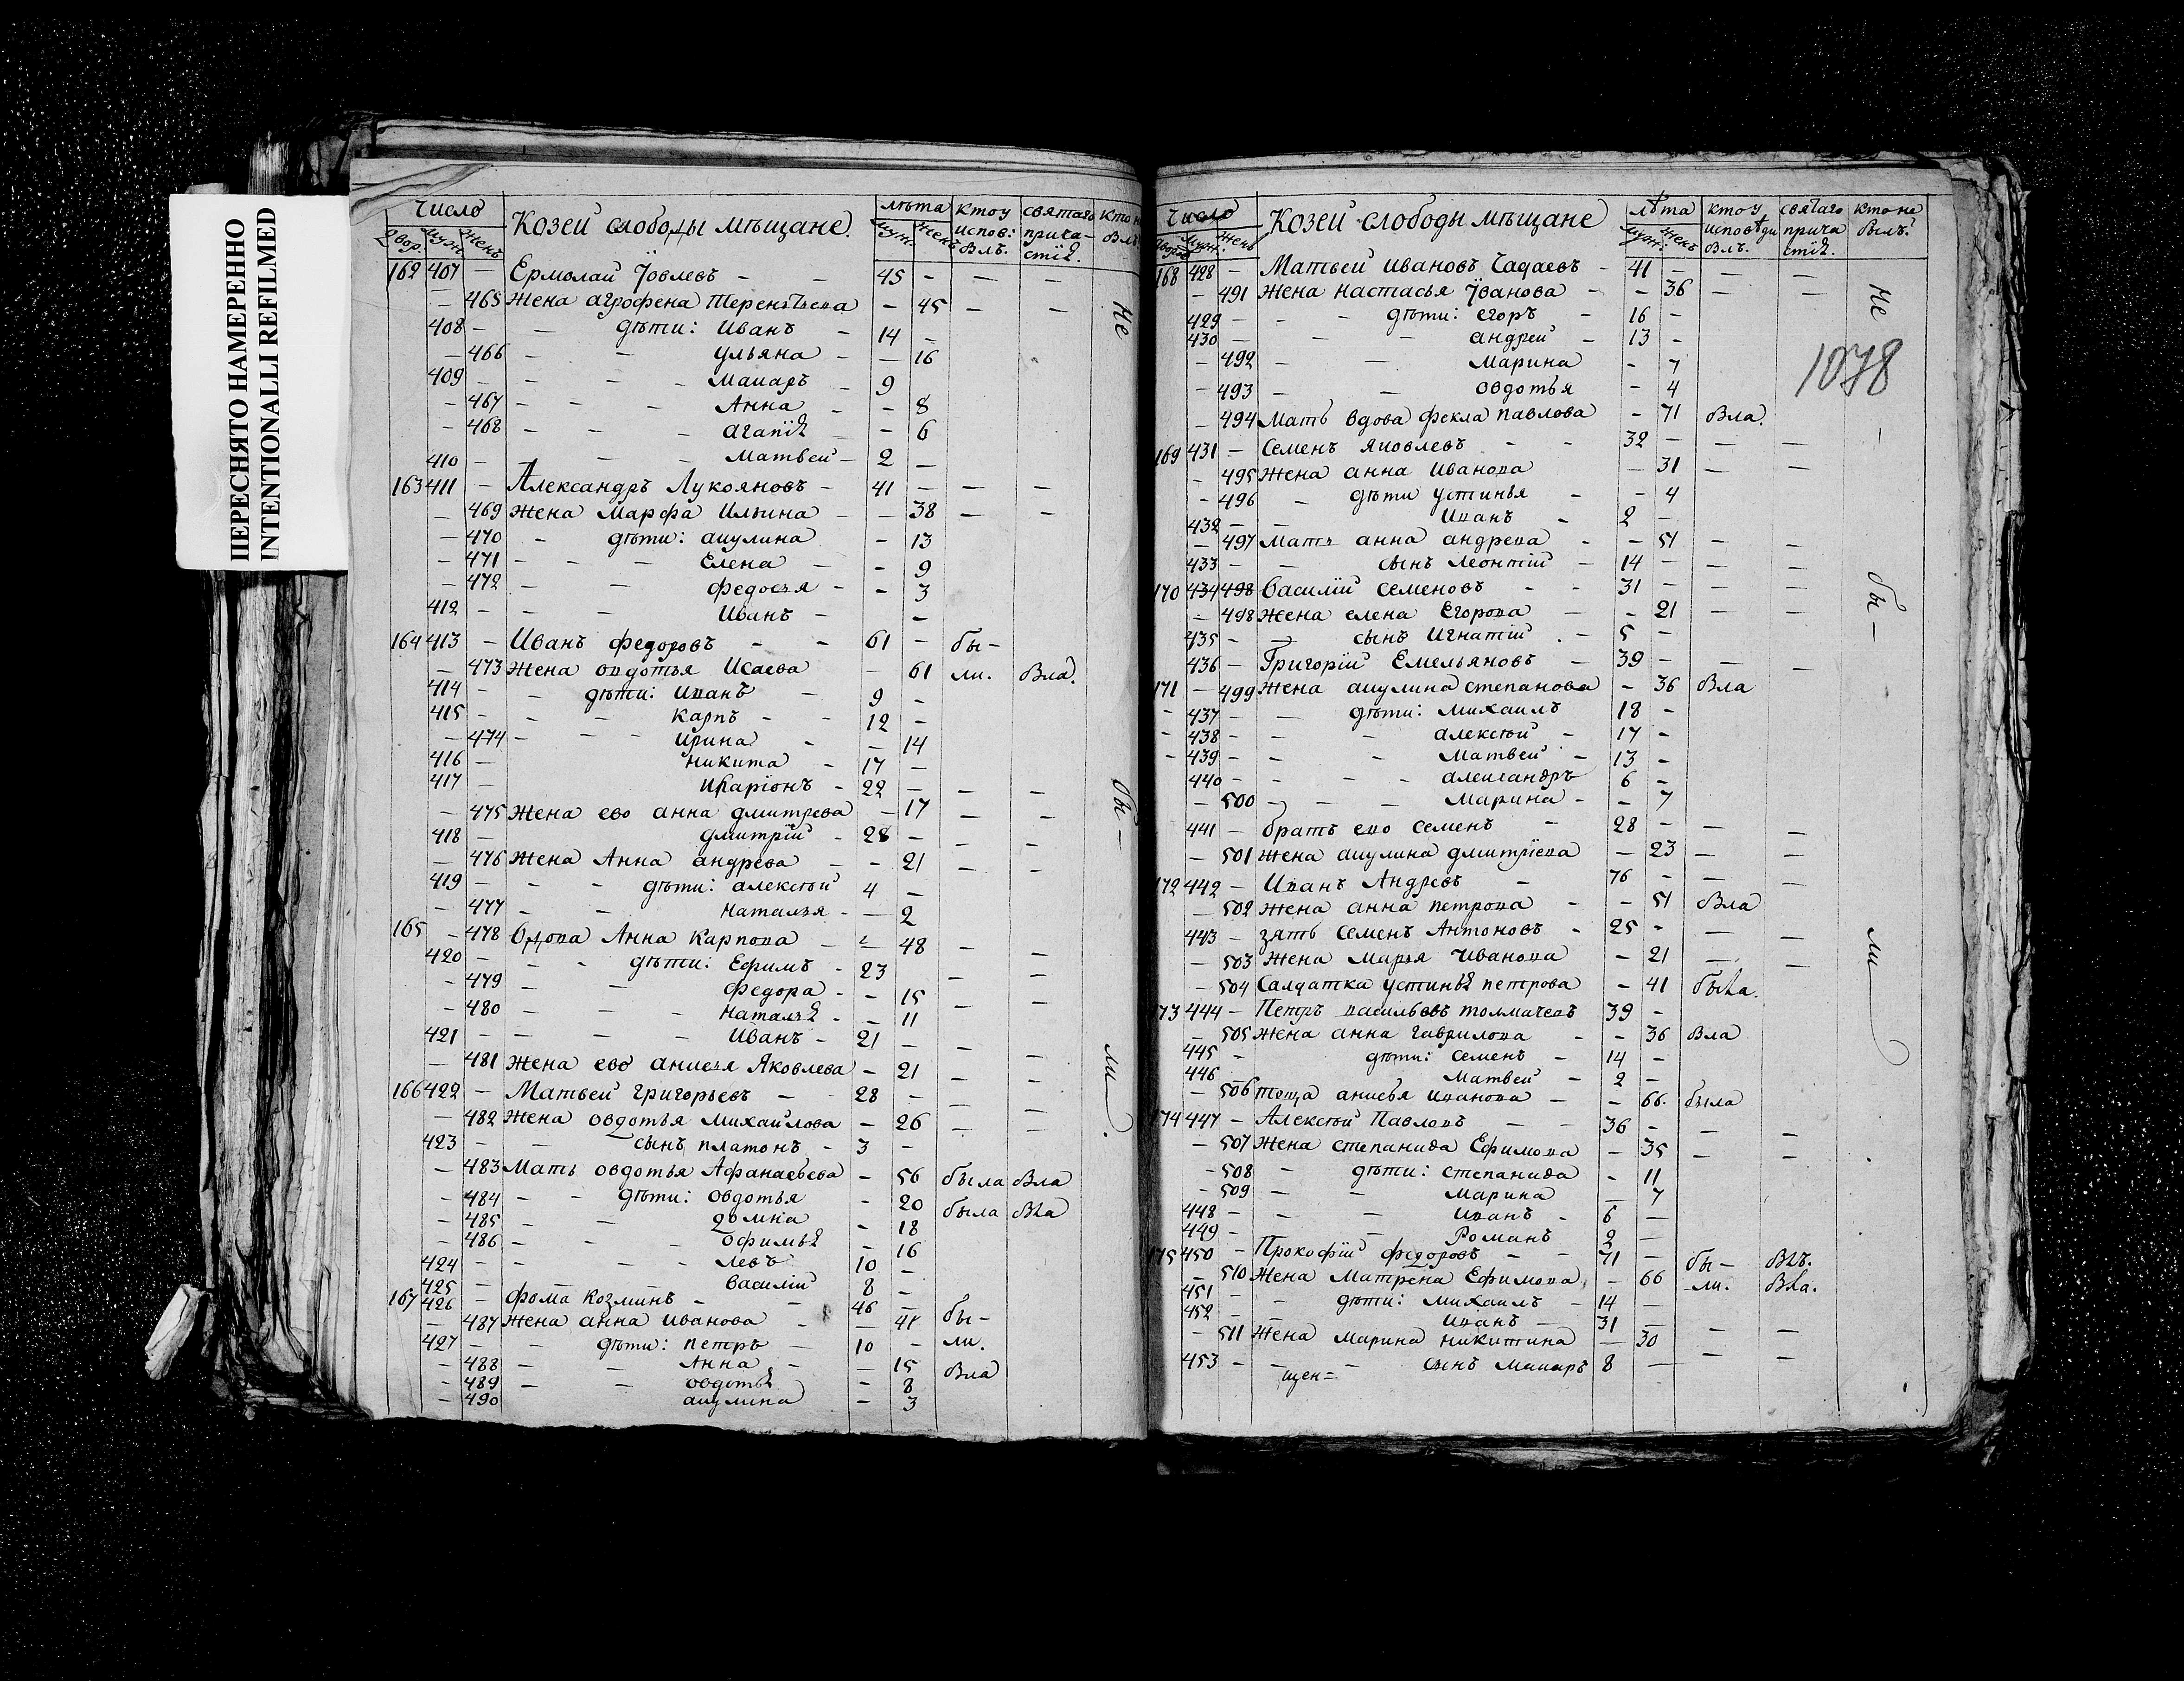 ПЕРЕСНЯТО НАМЕРЕННО
INTENTIONALLI REFILMED
Число Козей слободы мѣщане. лѣта кто у испов: Блъ. святаго прича-стїѧ. кто н Блъ
двор. муж. жень муж. жень
162 407 — Ермолай Їовлевъ — — 45 — — —
— 465 Жена агрофена терентьева — 45 — —
408 — — дѣти: Иванъ — 14 —
— 466 — — ульяна — — 16
409 — — — — Макаръ — 9
— 467 — — — Анна — — 8
— 468 — — — агапїѧ — — 6
410 — — — — Матвей — 2 —
163 411 — Александръ Лукояновъ — 41 — — —
— 469 Жена Марфа Ильина — — 38 — —
— 470 — дѣти: акулина — 13
— 471 — — — Елена — — 9
— 472 — — Федосья — — 3
412 — — — Иванъ — —
164 413 — Иванъ Федоровъ — — 61 — бы-
— 473 Жена овдотья Исаева — 61 ли. Бла.
414 — — дѣти: Иванъ — 9 —
415 — — — Карпъ — — 12 —
— 474 — — — Ирина — — 14
416 — Никита — 17 —
417 — Иларїонъ — 22 — — —
— 475 Жена ево анна дмитрева — 17 — —
418 — дмитрїй — 28 — — —
— 476 Жена Анна андрева — — 21 — —
419 — — — дѣти: алексѣй 4 —
— 477 — — Наталья — — 2
165 — 478 Вдова Анна Карпова — — 48 — —
420 — — — дѣти: Ефимъ — 23 — —
— 479 — — Федора — — 15 — —
— 480 — — — Натальѧ — — 11
421 — — — — Иванъ — 21 — — —
— 481 Жена ево анисья Яковлева — 21 — —
166 422 — Матвей Григорьевъ — — 28 — — —
— 482 Жена овдотья Михайлова — 26 — —
423 — — сынъ платонъ — 3 —
— 483 Мать овдотья Афанасьева — 56 была Бла
— 484 — — дѣти: овдотья — 20 была Бла
— 485 — — домна — 18
— 486 — — — офимьѧ — 16
424 — — — — Левъ 10 —
425 — — — василїй 8 —
167 426 — Фома Козминъ — — 46 — бы-
— 487 Жена анна иванова — — 41 ли.
427 — — дѣти: петръ — 10 —
— 488 — — Анна — — 15 Бла
— 489 — — овдотьѧ — 8
— 490 акулина — 3
не бы- ли.
Число Козей слободы мѣщане лѣта кто у исповѣди Блъ. святаго прича стїѧ. кто не былъ.
двор. муж. жень муж. жень
168 428 — Матвей ивановъ Чадаевъ — 41 — — —
— 491 Жена настасья Їванова — — 36 — —
429 — — — дѣти: егоръ — 16 —
430 — — — андрей — 13 —
— 492 — — Марина — 7
— 493 — — овдотья — 4
1078
— 494 Мать вдова фекла павлова — 71 Бла.
169 431 — Семенъ яковлевъ — — 32 — — —
— 495 Жена анна иванова — 31 — —
— 496 — дѣти устинья — — 4
432 — — Иванъ — 2 —
— 497 Мать анна андрева — — 51 — —
433 — — сынъ леонтїй — 14 — — —
170 434 498 Василїй семеновъ — — 31 — — —
— 498 Жена елена Егорова — — 21 — —
435 — — сынъ Игнатїй — 5 —
436 — Григорїй Емельяновъ — 39 — — —
171 — 499 Жена акулина степанова — 36 Бла
— 437 — — дѣти: михаилъ 18 —
— 438 — — — алексѣй — 17 —
— 439 — — Матвей — 13 —
440 — — — — александръ 6 —
— 500 — — — Марина — — 7
441 — братъ ево семенъ — 28 — — —
— 501 Жена акулина дмитрїева — 23 — —
172 442 — Иванъ Андревъ — 76 — — —
— 502 Жена анна петрова — — 51 Бла
443 — зять семенъ Антоновъ — 25 — — —
— 503 Жена Марья Иванова — 21 — —
— 504 Салдатка устиньѧ петрова — 41 была.
173 444 — Петръ васильевъ толмачевъ 39 —
— 505 Жена анна гаврилова — — 36 Бла
445 — дѣти: семенъ — 14 —
446 — Матвей — 2 —
— 506 теща анисья иванова — — 66. была
174 447 — Алексѣй Павловъ — — 36 — — —
— 507 Жена степанида Ефимова — 35 — —
— 508 — дѣти: степанида — 11
— 509 — — Марина — 7
448 — — — Иванъ — 6 —
449 — — Романъ 2 —
175 450 — Прокофїй федоровъ — — 71 — бы- Блъ.
— 510 Жена Матрена Ефимова, — 66 ли. Бла.
451 — — дѣти: михаилъ — 14 —
452 — — Иванъ — 31 — — —
— 511 Жена марина никитина — 30 — —
453 — — — сынъ Макаръ 8 —
щен=
не — бы- ли